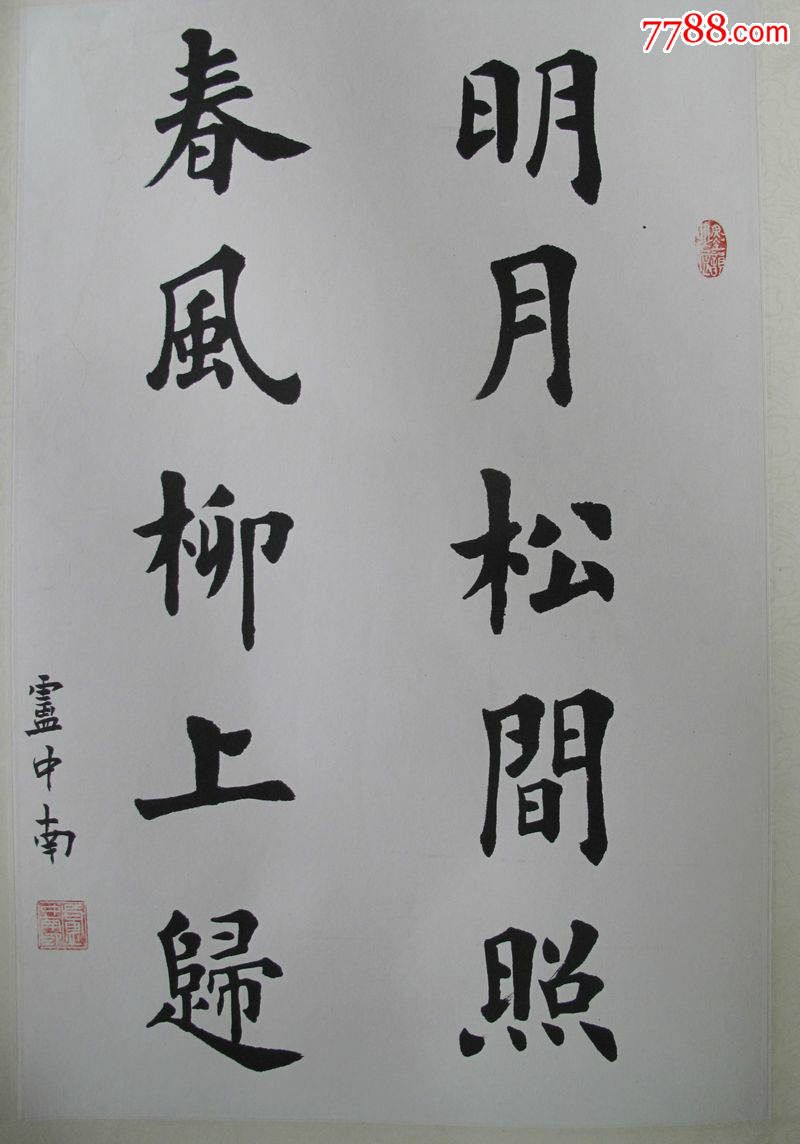 7788.com
明月松間照
春風柳上歸
盧中南